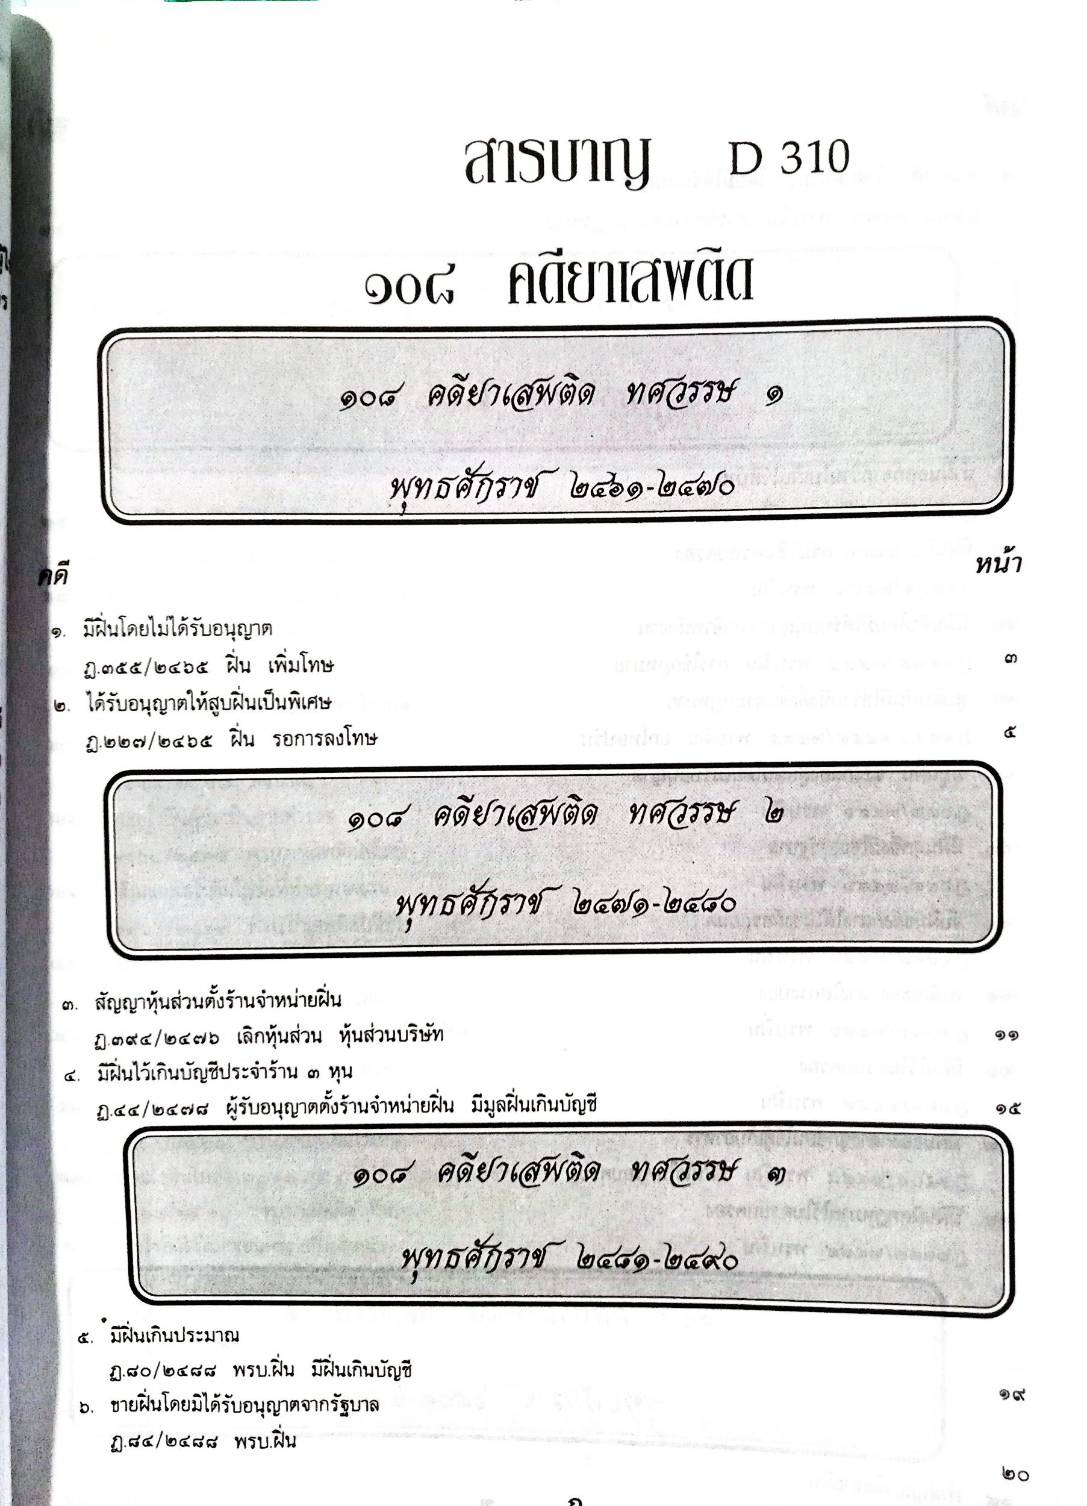 สารบาญ D 310
๑๐๘ คดียาเสพติด
๑๐๘ คดียาเสพติด ทศวรรษ ๑
พุทธศักราช ๒๔๖๑-๒๔๗๐
คดี หน้า
๑. มีฝิ่นโดยไม่ได้รับอนุญาต
ฎ.๓๕๕/๒๔๖๕ ฝิ่น เพิ่มโทษ ๓
๒. ได้รับอนุญาตให้สูบฝิ่นเป็นพิเศษ
ฎ.๒๒๗/๒๔๖๕ ฝิ่น รอการลงโทษ ๕
๑๐๘ คดียาเสพติด ทศวรรษ ๒
พุทธศักราช ๒๔๗๑-๒๔๘๐
๓. สัญญาหุ้นส่วนตั้งร้านจำหน่ายฝิ่น
ฎ.๓๙๔/๒๔๗๖ เลิกหุ้นส่วน หุ้นส่วนบริษัท ๑๑
๔. มีฝิ่นไว้เกินบัญชีประจำร้าน ๓ หุน
ฎ.๔๔/๒๔๗๘ ผู้รับอนุญาตตั้งร้านจำหน่ายฝิ่น มีมูลฝิ่นเกินบัญชี ๑๕
๑๐๘ คดียาเสพติด ทศวรรษ ๓
พุทธศักราช ๒๔๘๑-๒๔๙๐
๕. มีฝิ่นเกินประมาณ
ฎ.๘๐/๒๔๘๘ พรบ.ฝิ่น มีฝิ่นเกินบัญชี ๑๙
๖. ขายฝิ่นโดยมิได้รับอนุญาตจากรัฐบาล
ฎ.๘๔/๒๔๘๘ พรบ.ฝิ่น ๒๐